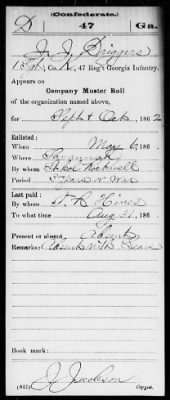 (Confederate.)
D 47 Ga.
J. J. Driggers
1 Sgt, Co. K, 47 Reg't Georgia Infantry.
Appears on
Company Muster Roll
of the organization named above,
for Sept & Oct, 1862
Enlisted:
When May 6, 186
Where Savannah
By whom
Period 3 years or War
Last paid:
By whom
To what time Aug 31, 186
Present or absent, Absent
Remarks: Absent with Leave
(642) J. Jacobson
Copyist.